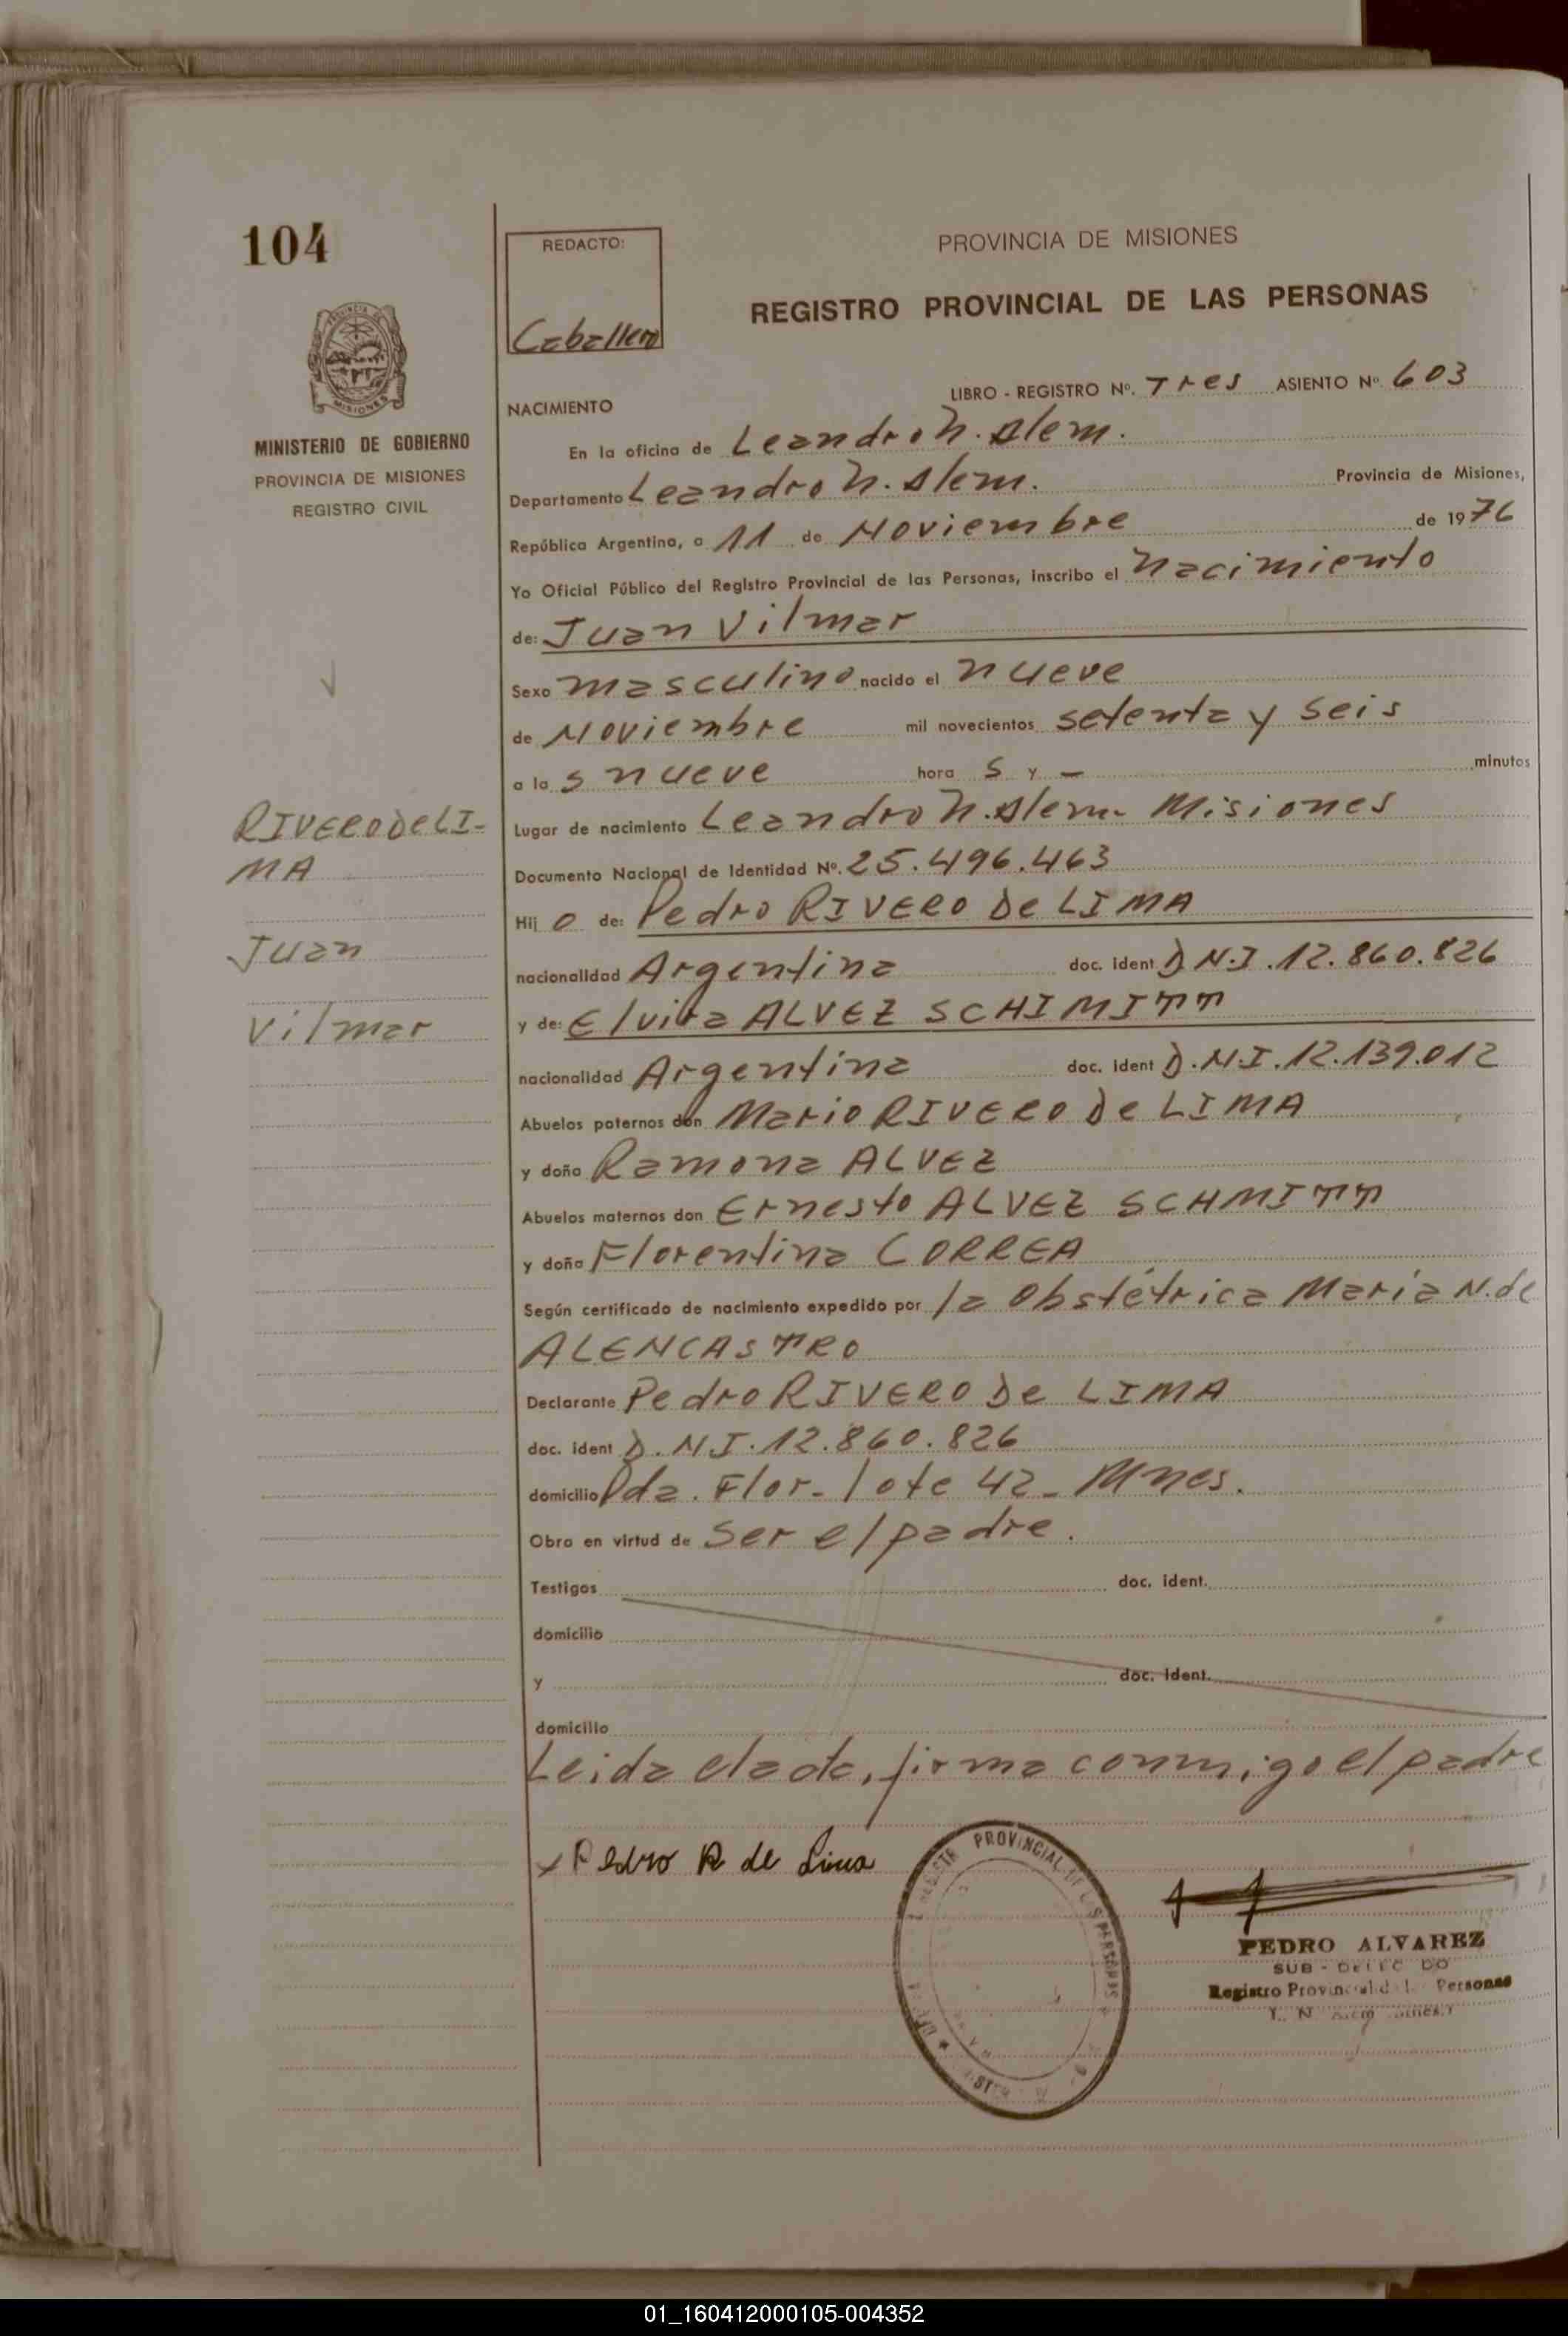 104
PROVINCIA DE MISIONES
MINISTERIO DE GOBIERNO
PROVINCIA DE MISIONES
REGISTRO CIVIL
REDACTO:
Caballero
PROVINCIA DE MISIONES
REGISTRO PROVINCIAL DE LAS PERSONAS
LIBRO - REGISTRO Nº. Tres ASIENTO Nº 603
NACIMIENTO
En la oficina de Leandro N. Alem.
Departamento Leandro N. Alem. Provincia de Misiones,
República Argentina, a 11 de Noviembre de 1976
Yo Oficial Público del Registro Provincial de las Personas, inscribo el Nacimiento
de: Juan Vilmar
Sexo masculino nacido el nueve
de Noviembre mil novecientos setenta y seis
a la s nueve hora s y - minutos
Lugar de nacimiento Leandro N. Alem - Misiones
Documento Nacional de Identidad Nº. 25.496.463
Hij o de: Pedro RIVERO De LIMA
nacionalidad Argentina doc. ident D.N.I. 12.860.826
y de: Elvira ALVEZ SCHIMITT
nacionalidad Argentina doc. ident D.N.I. 12.139.012
Abuelos paternos don Mario RIVERO De LIMA
y doña Ramona ALVEZ
Abuelos maternos don Ernesto ALVEZ SCHMITT
y doña Florentina CORREA
Según certificado de nacimiento expedido por la Obstétrica María N. de
ALENCASTRO
Declarante Pedro RIVERO De LIMA
doc. ident D.N.I. 12.860.826
domicilio Pda. Flor - lote 42 - Mnes.
Obra en virtud de Ser el padre.
Testigos doc. ident.
domicilio
y doc. ident.
domicilio
Leida el acta, firma conmigo el padre
RIVERO De LI-
MA
Juan
Vilmar
x Pedro R de Lima
PROVINCIAL DE PERSONAS
PEDRO ALVAREZ
SUB -
Registro Personas
L. N.
01_160412000105-004352